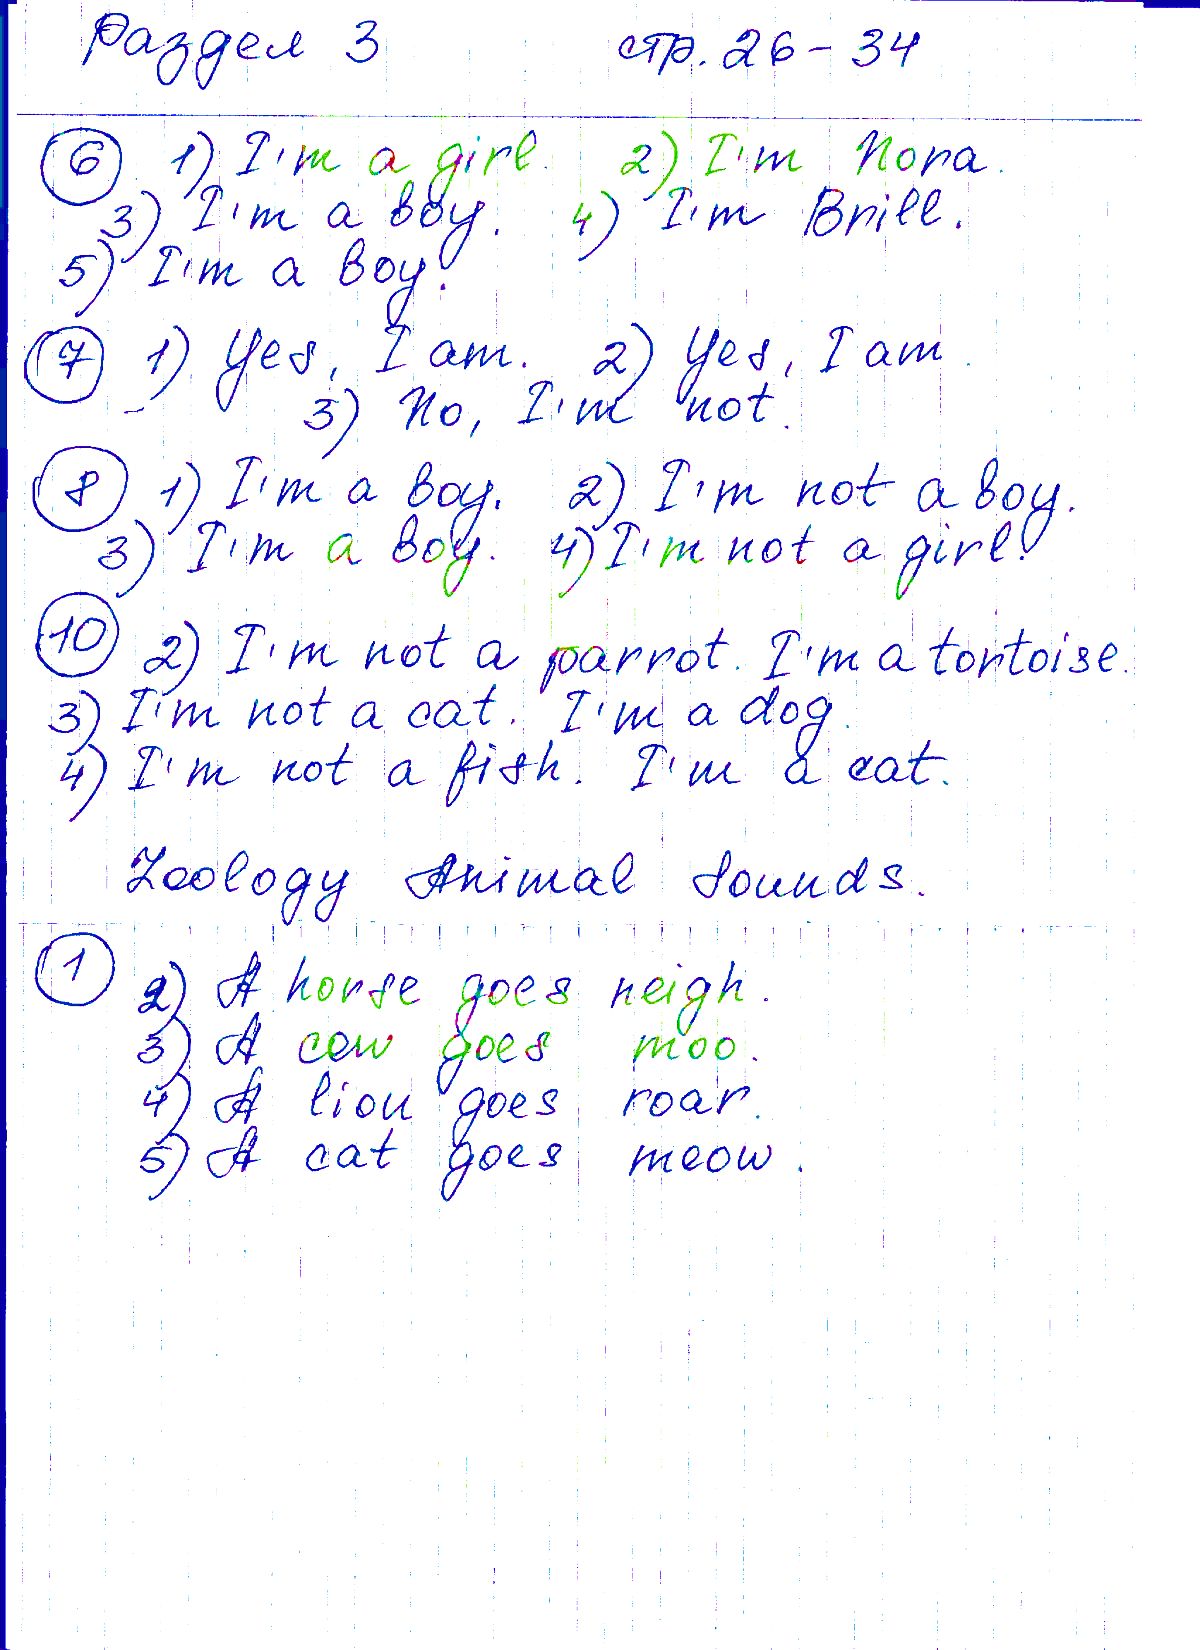 Раздел 3 стр. 26-34
6 1) I'm a girl. 2) I'm Nora.
3) I'm a boy. 4) I'm Brill.
5) I'm a boy.
7 1) Yes, I am. 2) Yes, I am.
3) No, I'm not.
8 1) I'm a boy. 2) I'm not a boy.
3) I'm a boy. 4) I'm not a girl.
10 2) I'm not a parrot. I'm a tortoise.
3) I'm not a cat. I'm a dog.
4) I'm not a fish. I'm a cat.
Zoology Animal Sounds.
1
2) A horse goes neigh.
3) A cow goes moo.
4) A lion goes roar.
5) A cat goes meow.